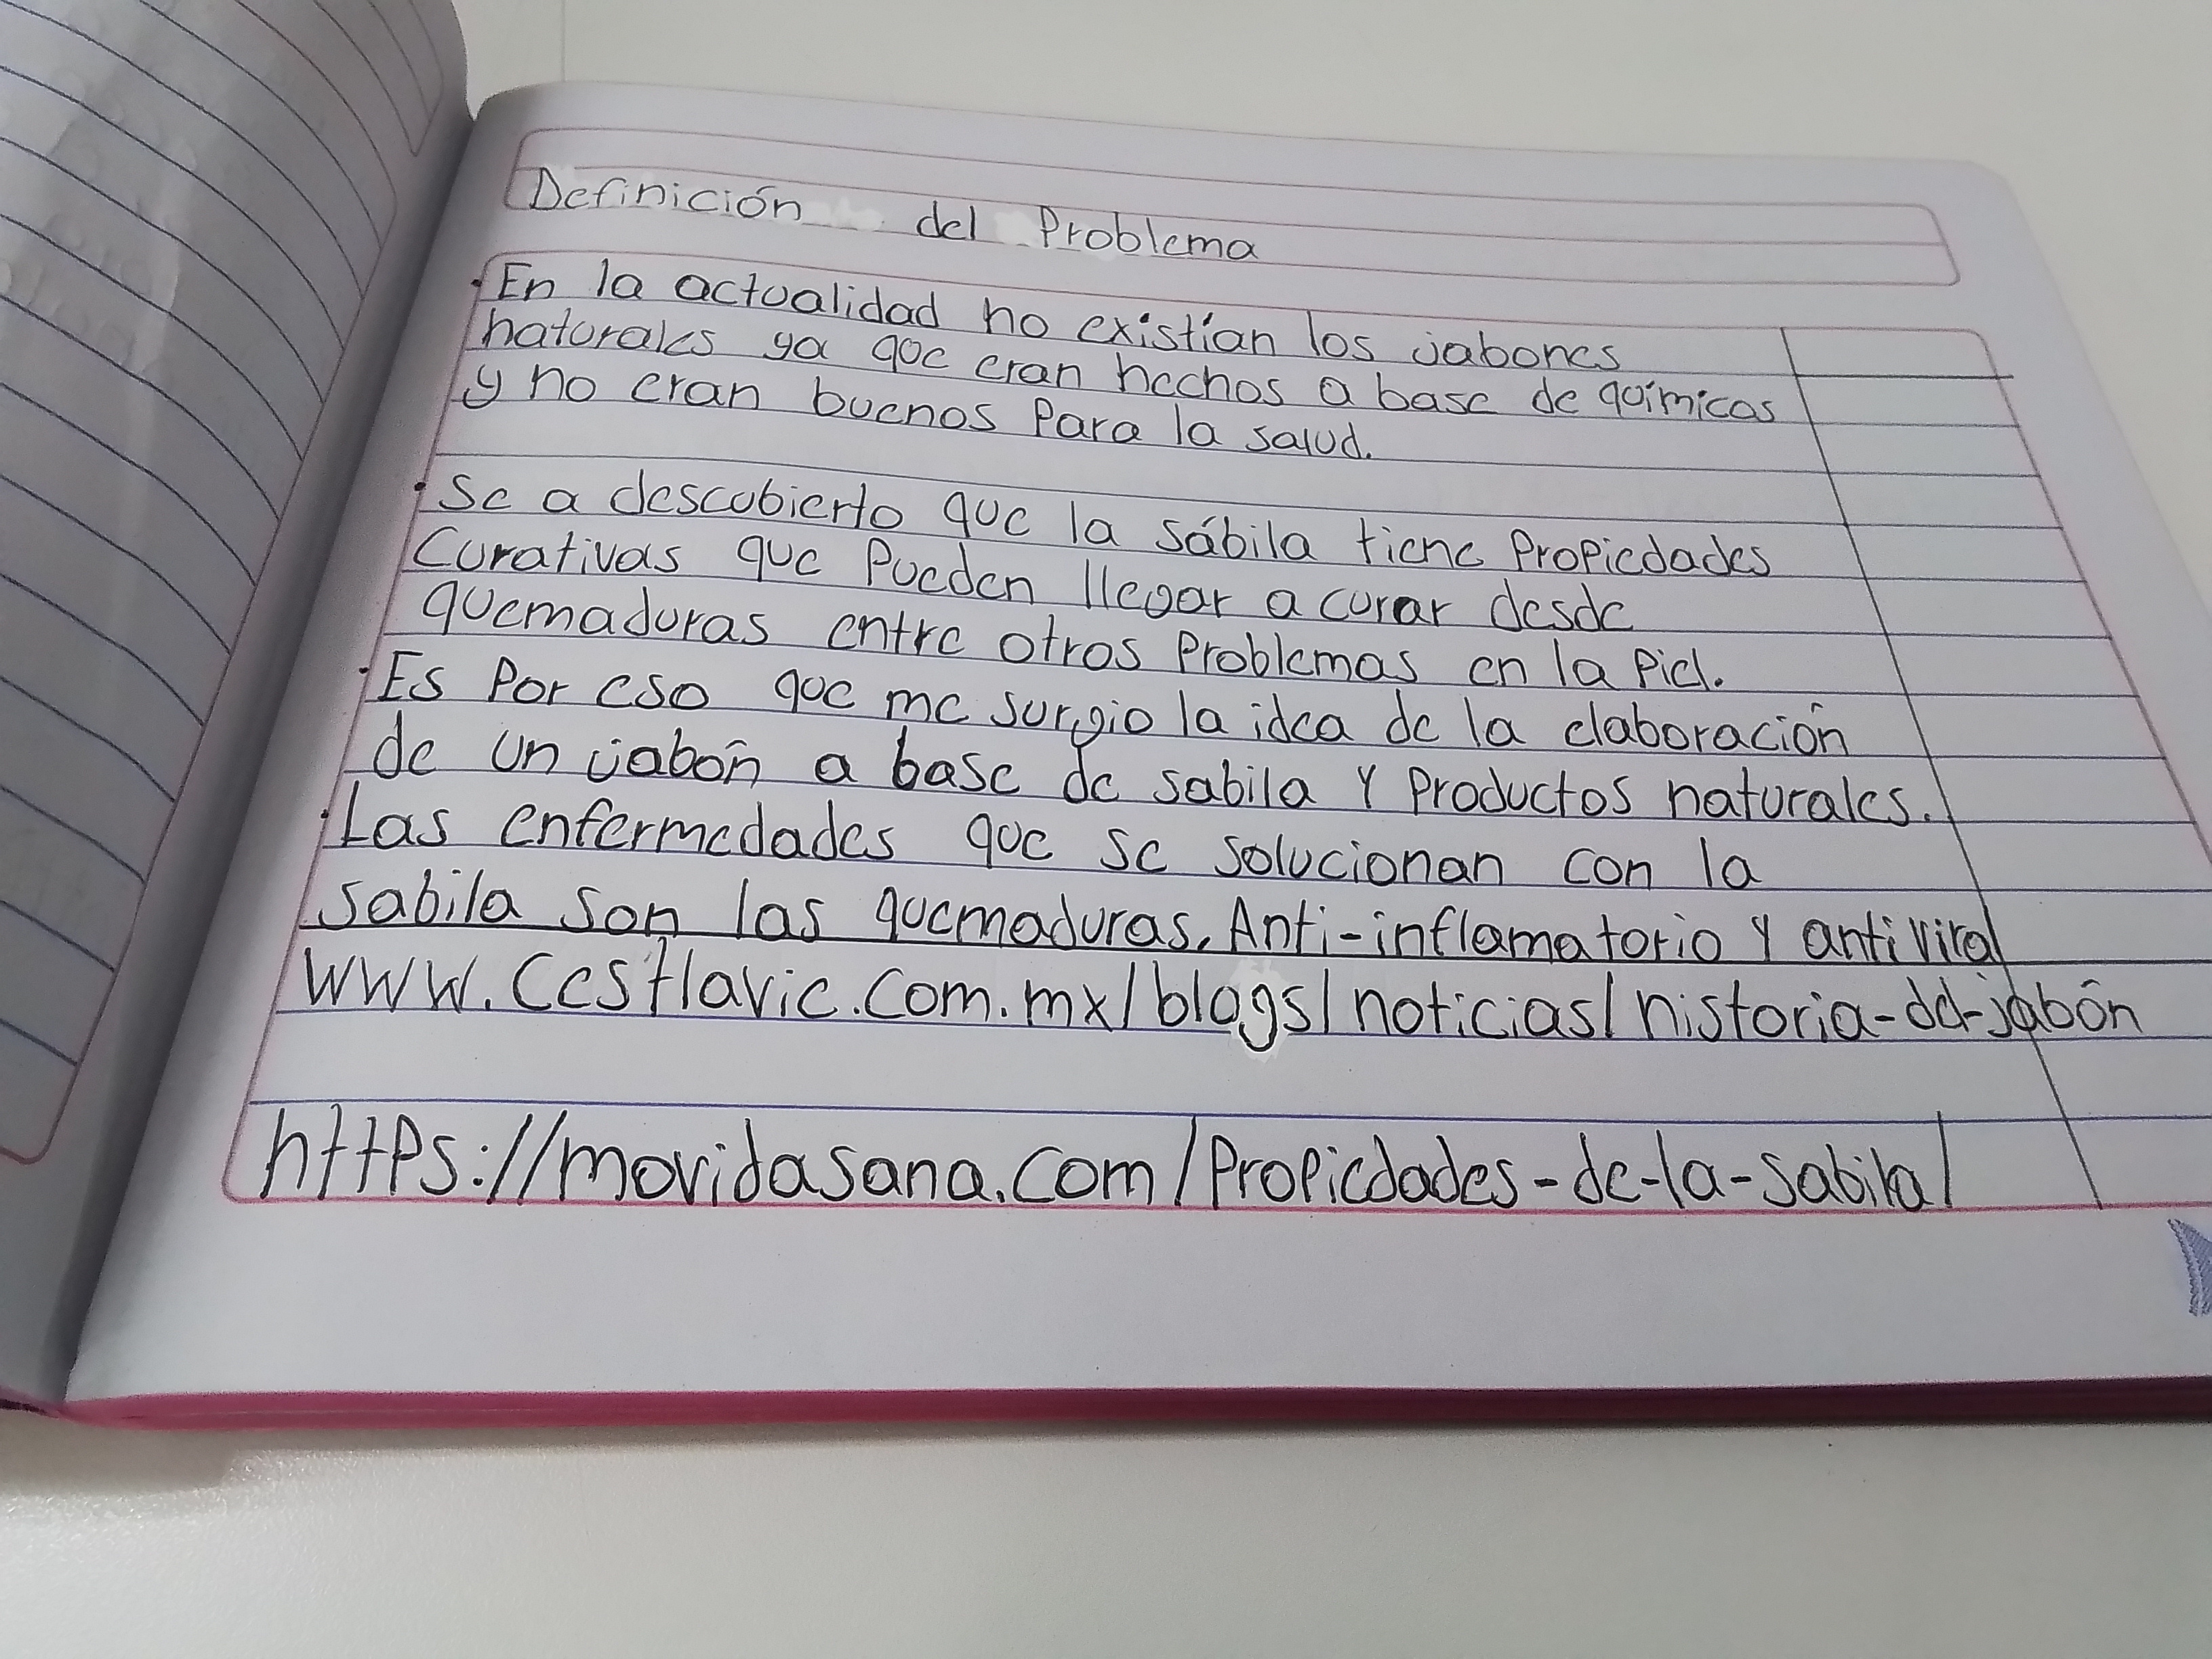 Definición del Problema
• En la actualidad no existían los jabones
naturales ya que eran hechos a base de químicos
y no eran buenos Para la salud.
• Se a descubierto que la sábila tiene Propiedades
Curativas que Pueden llegar a curar desde
quemaduras entre otros Problemas en la Piel.
• Es Por eso que me surgio la idea de la elaboración
de un jabón a base de sabila Y Productos naturales.
• Las enfermedades que se solucionan con la
sabila son las quemaduras, Anti-inflamatorio Y antiviral
www.Cesflavic.com.mx/blogs/noticias/historia-del-jabón
https://movidasana.com/Propiedades-de-la-sabila/